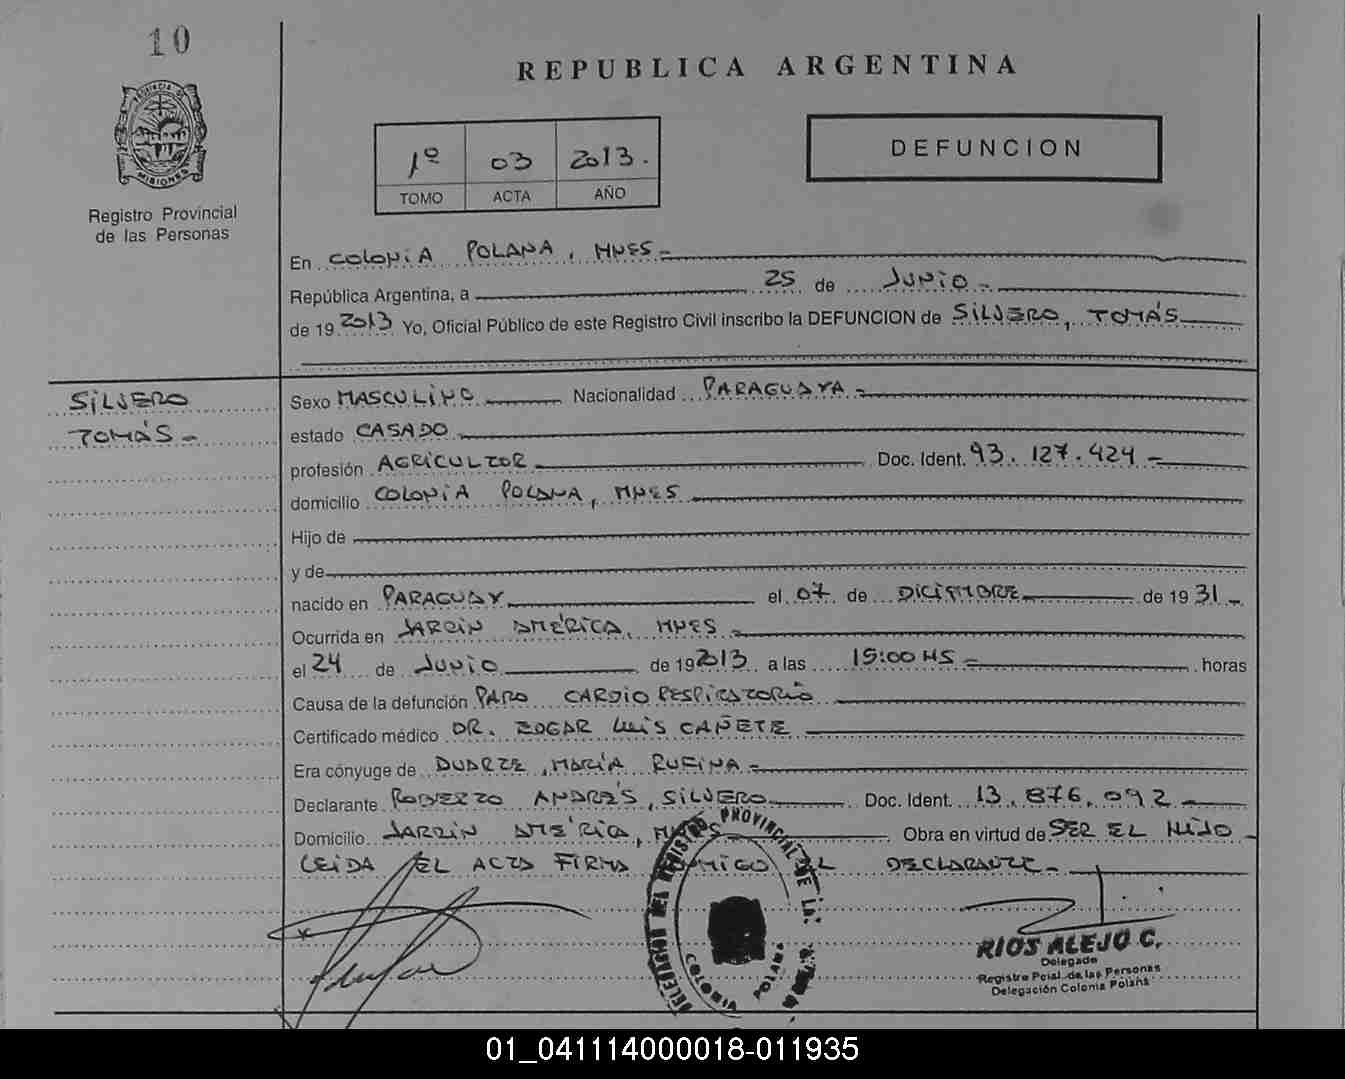 10
REPUBLICA ARGENTINA
PROVINCIA DE
MISIONES
1º 03 2013.
TOMO ACTA AÑO
DEFUNCION
Registro Provincial
de las Personas
En COLONIA POLANA, MNES-
República Argentina, a 25 de JUNIO-
de 19 2013 Yo, Oficial Público de este Registro Civil inscribo la DEFUNCION de SILVERO, TOMÁS
SILVERO
TOMÁS-
Sexo MASCULINO Nacionalidad PARAGUAYA-
estado CASADO
profesión AGRICULTOR Doc. Ident. 93.127.424-
domicilio COLONIA POLANA, MNES
Hijo de
y de
nacido en PARAGUAY el 07 de DICIEMBRE de 19 31-
Ocurrida en JARDIN AMÉRICA, MNES-
el 24 de JUNIO de 19 2013 a las 15:00 HS- horas
Causa de la defunción PARO CARDIO RESPIRATORIO
Certificado médico DR. EDGAR LUIS CAÑETE
Era cónyuge de DUARTE, MARÍA RUFINA-
Declarante ROBERTO ANDRÉS, SILVERO Doc. Ident. 13.876.092-
Domicilio JARDIN AMÉRICA, MNES Obra en virtud de SER EL HIJO-
LEIDA EL ACTA FIRMA CONMIGO EL DECLARANTE-
DELEGACION DEL REGISTRO PROVINCIAL DE LAS
COLONIA POLANA
RIOS ALEJO C.
Delegado
Registro Pcial. de las Personas
Delegación Colonia Polana
01_041114000018-011935